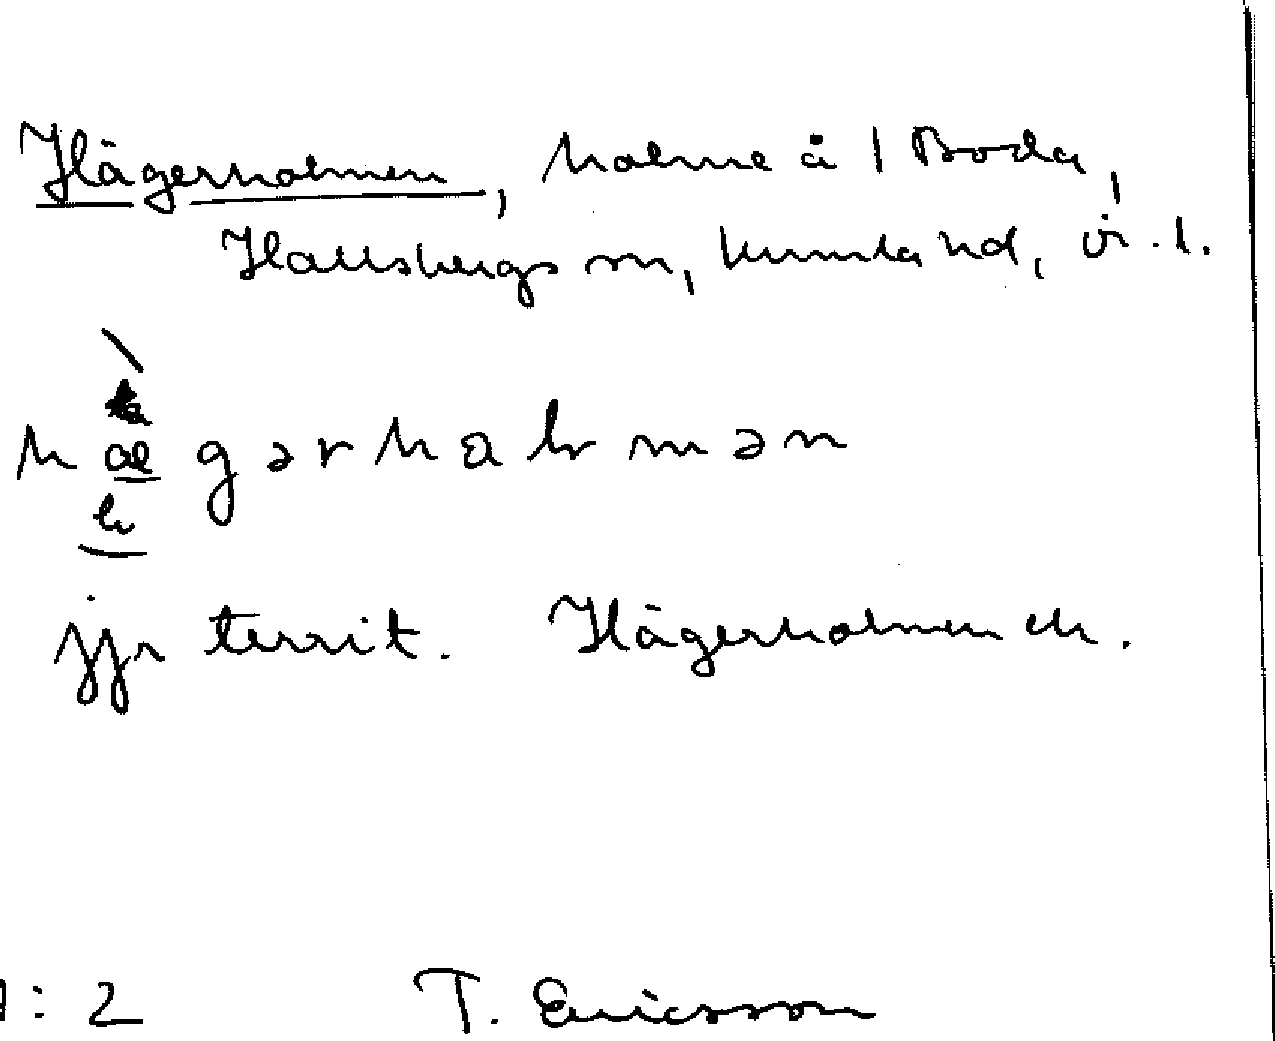 Hägerholmen, holme å 1 Boda,
Hallsbergs sn, Kumla hd, ör. l.
hægərhalmən
jfr territ. Hägerholmen etc.
1:2 T. Ericsson